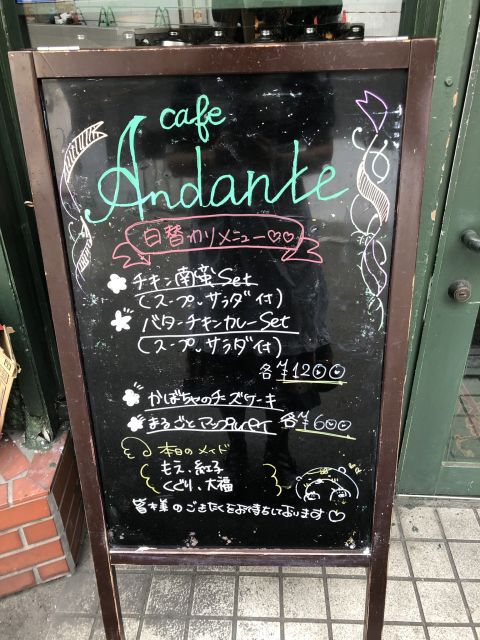 cafe
Andante
日替わりメニュー♡♡
チキン南蛮Set
(スープ、サラダ付)
バターチキンカレーSet
(スープ、サラダ付)
各¥1200
かぼちゃのチーズケーキ
まるごとアップルパイ 各¥600
本日のメイド
もえ、紅子
くどり、大福
お待ちしております♡